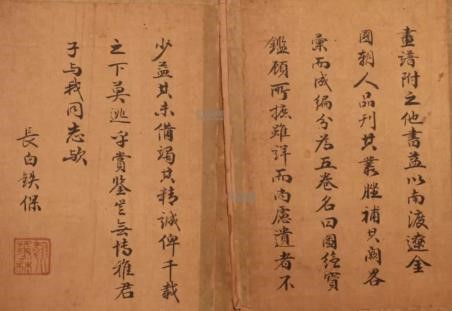 畫譜附之他書益以南渡遼金
國朝人品刊其叢脞補其闕略
彙而成編分為五卷名曰圖繪寶
鑑顧所摭雖詳而尚慮遺者不
少益其未備竭其精誠俾千載
之下莫逃乎賞鑒是無博雅君
子与我同志歟
長白鉄保